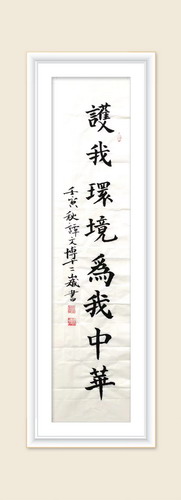 護我環境為我中華
壬寅秋譚文博十二歲書